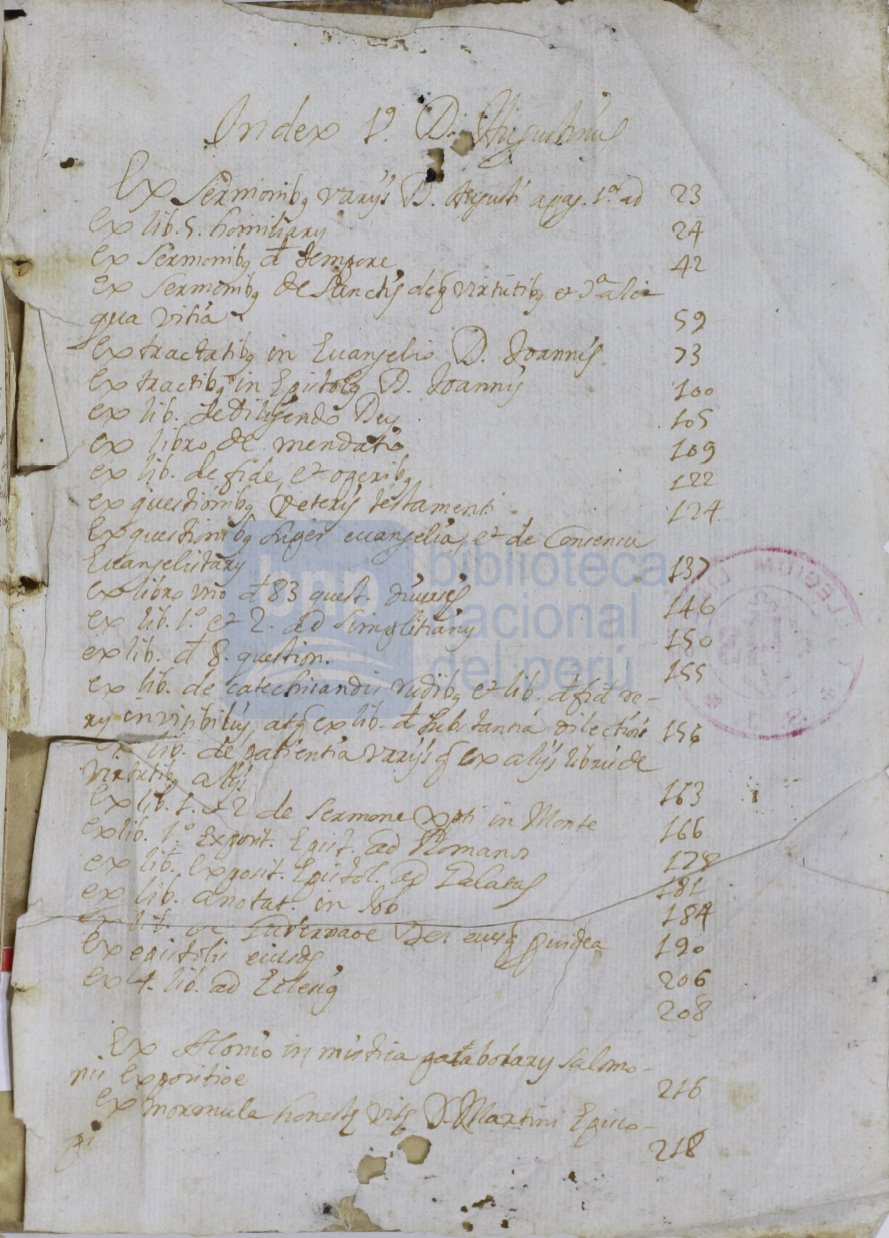 Index 1º. D. Augustinus
Ex Sermonibq varijs D. Augusti a pag. 1ª ad 23
ex lib. 5. homiliarꝝ 24
ex Sermonibq đ tempore 42
ex Sermonibq de Sanctis
qua vitia 59
Ex tractatibq in Euangelio D. Joannis 73
Ex tractibq in Epistolą D. Joannis 100
ex lib. de diligendo Deo 105
ex libro de mendatio 109
ex lib. de fide, et operibq 122
ex questionibq veteris testamenti 124
Ex questionibq super euangelia, et de Consensu
Euangelistarꝝ 137
ex libro uno đ 83 quest. diuersis 146
ex lib. 1.º et 2. ad Simplitianꝝ 150
ex lib. đ 8. question. 155
ex lib. de catechisandis rudibq et lib. đ fide re-
rꝝ inuisibiliũ, atq ex lib. đ substantia dilectionis 156
ex lib. de patientia varijs q ex alijs libris de
virtutibq alijs 163
Ex lib. 1. et 2 de sermone Xpti in Monte 166
ex lib. 1º Exposit. Epist. ad Romanos 178
ex lib. Exposit. Epistol. ad Galatas 181
ex lib. anotat. in Job 184
ex lib. 190
Ex epistolis eiusdẽ 206
ex 4. lib. ad 208
Ex in mistica parabolarꝝ Salomo-
nis Expositioe 216
ex normula honestę vitę D. Martini Episco-
pi 218
biblioteca
nacional
del perú
bnp